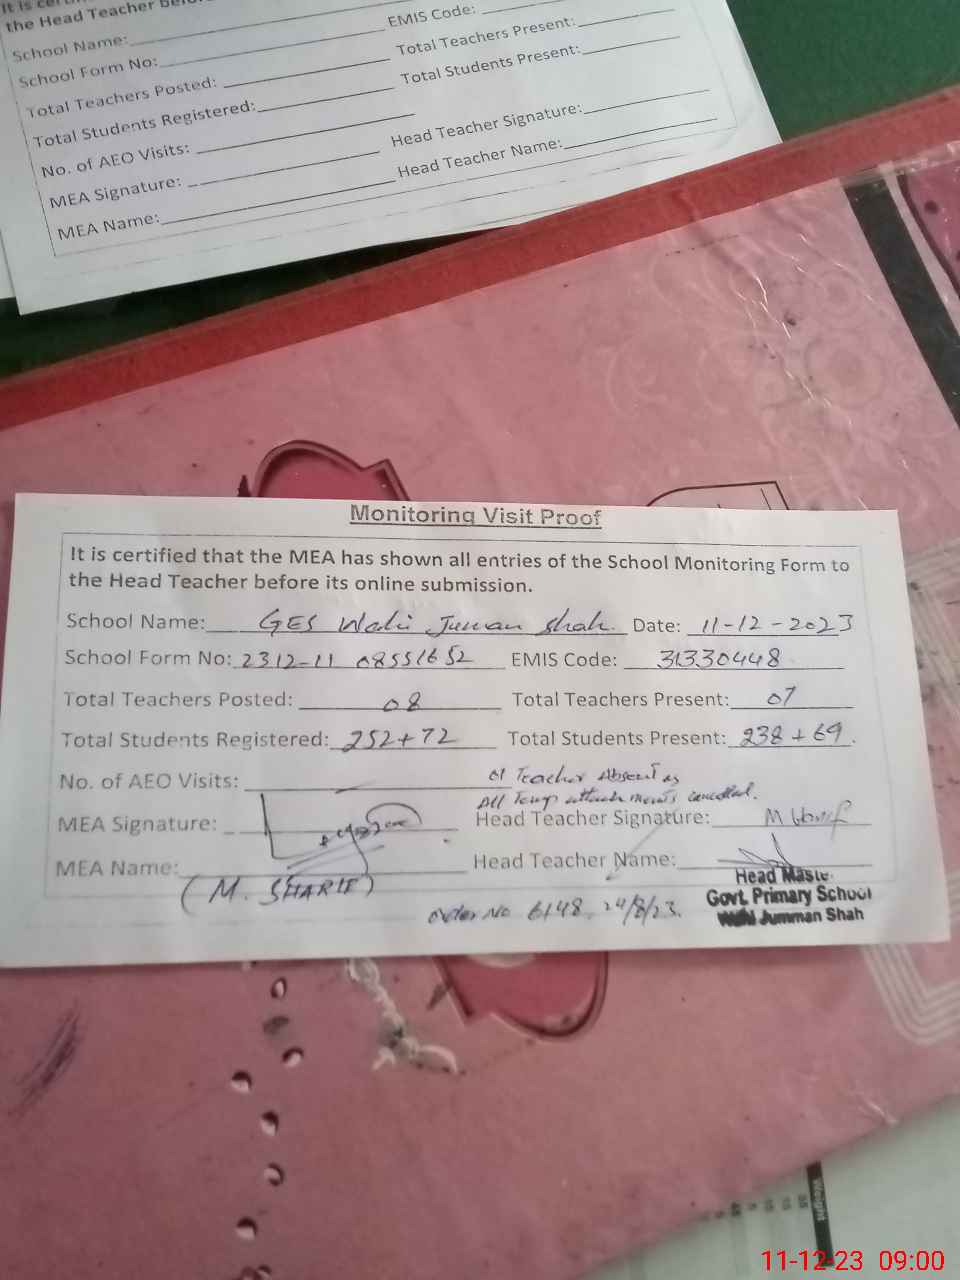 the Head Teacher
School Name:
EMIS Code:
School Form No:
Total Teachers Present:
Total Teachers Posted:
Total Students Present:
Total Students Registered:
No. of AEO Visits:
Head Teacher Signature:
MEA Signature:
Head Teacher Name:
MEA Name:
Monitoring Visit Proof
It is certified that the MEA has shown all entries of the School Monitoring Form to
the Head Teacher before its online submission.
School Name: GES Wahi Juman Shah. Date: 11-12-2023
School Form No: 2312-11 08551652 EMIS Code: 31330448
Total Teachers Posted: 08 Total Teachers Present: 07
Total Students Registered: 252+72 Total Students Present: 238+69.
No. of AEO Visits: 01 Teacher Absent as
All Temp attachments cancelled.
MEA Signature: Head Teacher Signature:
MEA Name: Head Teacher Name:
(M. SHARIF)
Head Maste
Govt. Primary School
Wahi Jumman Shah
order No 6148, 24/8/23.
Weight
11-12-23 09:00